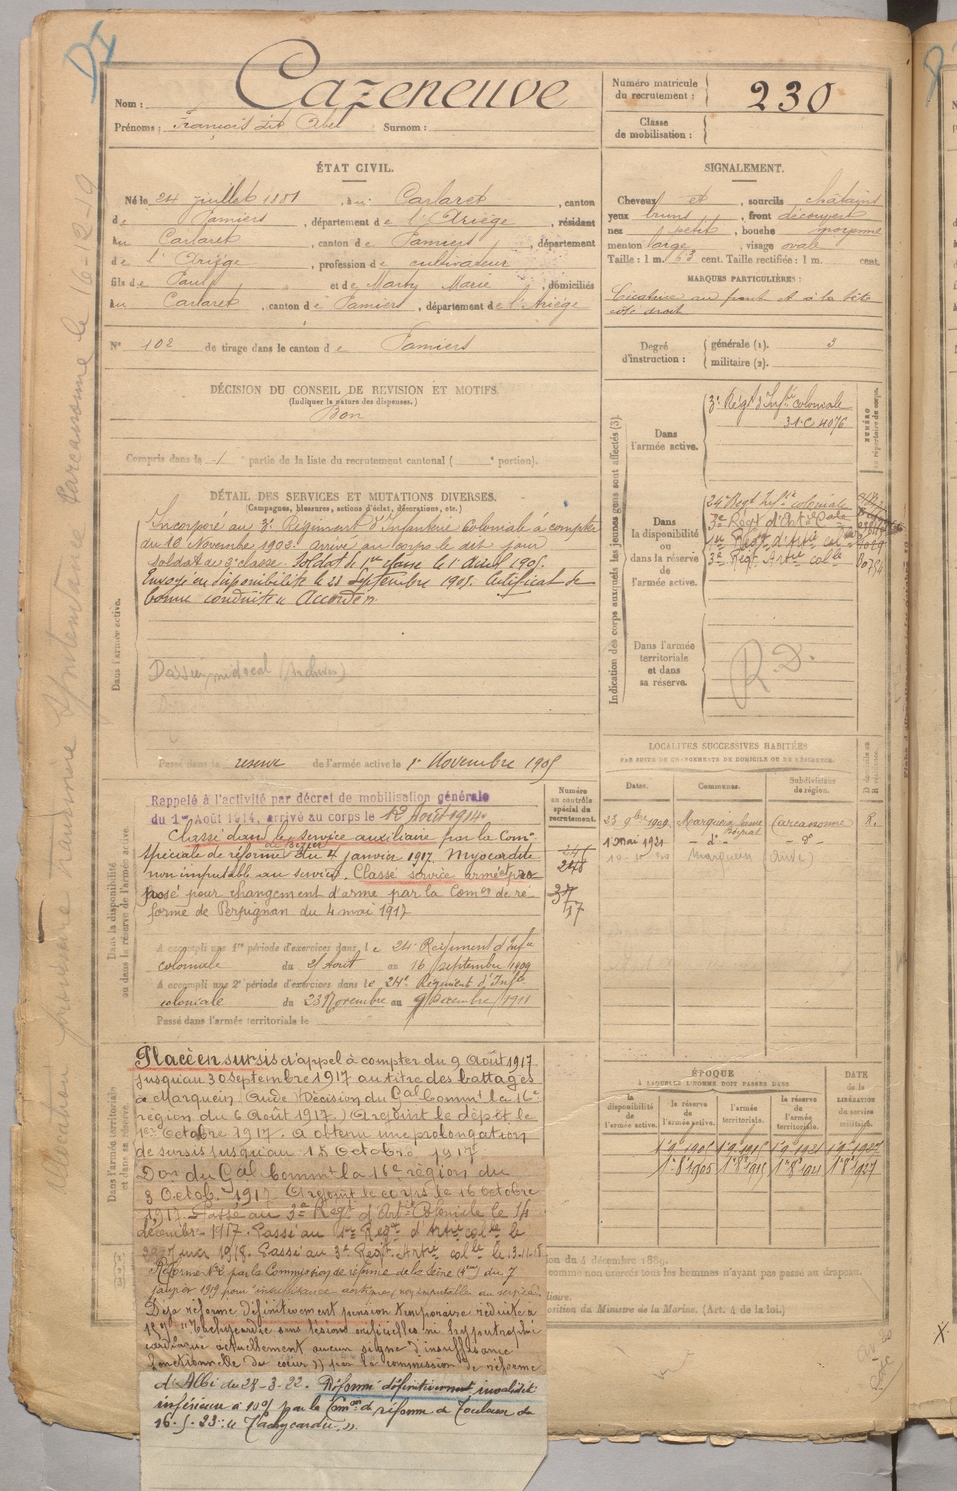 Nom : Cazeneuve
Prénoms : François dit Abel Surnom :
Numéro matricule du recrutement : 230
Classe de mobilisation :
ÉTAT CIVIL.
Né le 24 juillet 1881, à Carlaret, canton
de Pamiers, département de l'Ariège, résidant
au Carlaret, canton de Pamiers, département
de l'Ariège, profession de cultivateur
fils de Paul et de Marty Marie, domiciliés
au Carlaret, canton de Pamiers, département de l'Ariège
N° 102 de tirage dans le canton de Pamiers
SIGNALEMENT.
Cheveux et, sourcils châtains
yeux bruns, front découvert
nez petit, bouche moyenne
menton large, visage ovale
Taille : 1 m. 63 cent. Taille rectifiée : 1 m. cent.
MARQUES PARTICULIÈRES :
Cicatrice au front et à la tête
côté droit
Degré d'instruction : générale (1). 3
militaire (2).
DÉCISION DU CONSEIL DE REVISION ET MOTIFS.
(Indiquer la nature des dispenses.)
Bon
Compris dans la 1 partie de la liste du recrutement cantonal ( portion).
DÉTAIL DES SERVICES ET MUTATIONS DIVERSES.
(Campagnes, blessures, actions d'éclat, décorations, etc.)
Dans l'armée active.
Incorporé au 3e Régiment d'Infanterie Coloniale à compter
du 16 Novembre 1902. Arrivé au corps le dit jour
soldat de 2e classe. Soldat de 1re classe le 1er avril 1905.
Envoyé en disponibilité le 23 Septembre 1905. Certificat de
bonne conduite "Accordé"
Passé dans la réserve de l'armée active le 1er Novembre 1905
Indication des corps auxquels les jeunes gens sont affectés (3).
NUMÉRO au répertoire du corps.
Dans l'armée active.
3e Régt d'Infie coloniale
Dans la disponibilité ou dans la réserve de l'armée active.
24e Régt Infie coloniale
3e Régt d'Artie Colale
1er Régt d'Artie colle
3e Régt Artie colle
Dans l'armée territoriale et dans sa réserve.
R.D.
LOCALITÉS SUCCESSIVES HABITÉES
PAR SUITE DE CHANGEMENTS DE DOMICILE OU DE RÉSIDENCE.
Dates. Communes. Subdivisions de région.
23 9bre 1909 Marquein Carcassonne R.
1 Mai 1921 - d° - - d° -
Marquein (Aude)
Dans la disponibilité ou dans la réserve de l'armée active.
Numéro au contrôle spécial du recrutement.
Rappelé à l'activité par décret de mobilisation générale
du 1er Août 1914, arrivé au corps le 12 Août 1914.
Classé dans le service auxiliaire par la Com°n
Spéciale de réforme de Béziers du 4 janvier 1917. Myocardite
non imputable au service. Classé service armé et pro-
posé pour changement d'arme par la Comon de ré-
forme de Perpignan du 4 mai 1917
A accompli une 1re période d'exercices dans le 24e Régiment d'Infie
coloniale du 25 Août au 16 septembre 1909
A accompli une 2e période d'exercices dans le 24e Régiment d'Infie
coloniale du 23 Novembre au 9 Décembre 1911
Passé dans l'armée territoriale le
Dans l'armée territoriale et dans sa réserve.
Placé en sursis d'appel à compter du 9 Août 1917
jusqu'au 30 septembre 1917 au titre des battages
à Marquein (Aude) (Décision du Gal Commt la 16e
région du 6 Août 1917.) A rejoint le dépôt le
1er Octobre 1917. A obtenu une prolongation
de sursis jusqu'au 15 Octobre 1917
Don du Gal Commt la 16e région du
3 Octobre 1917. A rejoint le corps le 16 octobre
1917. Passé au 3e Régt d'Artie Coloniale le
décembre 1917. Passé au 1er Régt d'Artie colle le
1918. Passé au 3e Régt Artie colle le 13.11.18
Réformé N°2 par la Commission de réforme de la Seine du 7
janvier 1919 pour "insuffisance aortique, non imputable au service"
Déjà réformé définitivement pension temporaire réduite à
15% "Tachycardie sans lésions orificielles ni hypertrophie
cardiaque actuellement aucun signe d'insuffisance
fonctionnelle du cœur" par la commission de réforme
d'Albi du 28-3-22. Réformé définitivement invalidité
inférieure à 10% par la Comon de réforme de Toulouse du
16-5-23: "Tachycardie".
ÉPOQUE
À LAQUELLE L'HOMME DOIT PASSER DANS
la disponibilité de l'armée active. la réserve de l'armée active. l'armée territoriale. la réserve de l'armée territoriale. DATE de la LIBÉRATION du service militaire.
1er 9 1905 1er 9 1915 1er 9 1921 1er 9 1927
1er 8 1905 1er 8 1915 1er 8 1921 1er 8 1927
ion du 4 décembre 1889.
comme non exercés tous les hommes n'ayant pas passé au drapeau.
osition du Ministre de la Marine. (Art. 4 de la loi.)